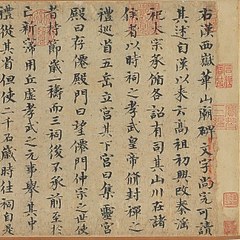 右漢西嶽華山廟碑文字尚完可讀
其述自漢以來云高祖初興改秦淫
祀太宗承循各詔有司其山川在諸
侯者以時祠之孝武皇帝修封禪之
禮巡省五岳立宮其下宮曰集靈宮
殿曰存僊殿門曰望僊門仲宗之世使
者持節歲一禱而三祠後不承前至於
亡新寖用丘虛孝武之元事舉其中
禮從其省但使二千石歲時往祠自是